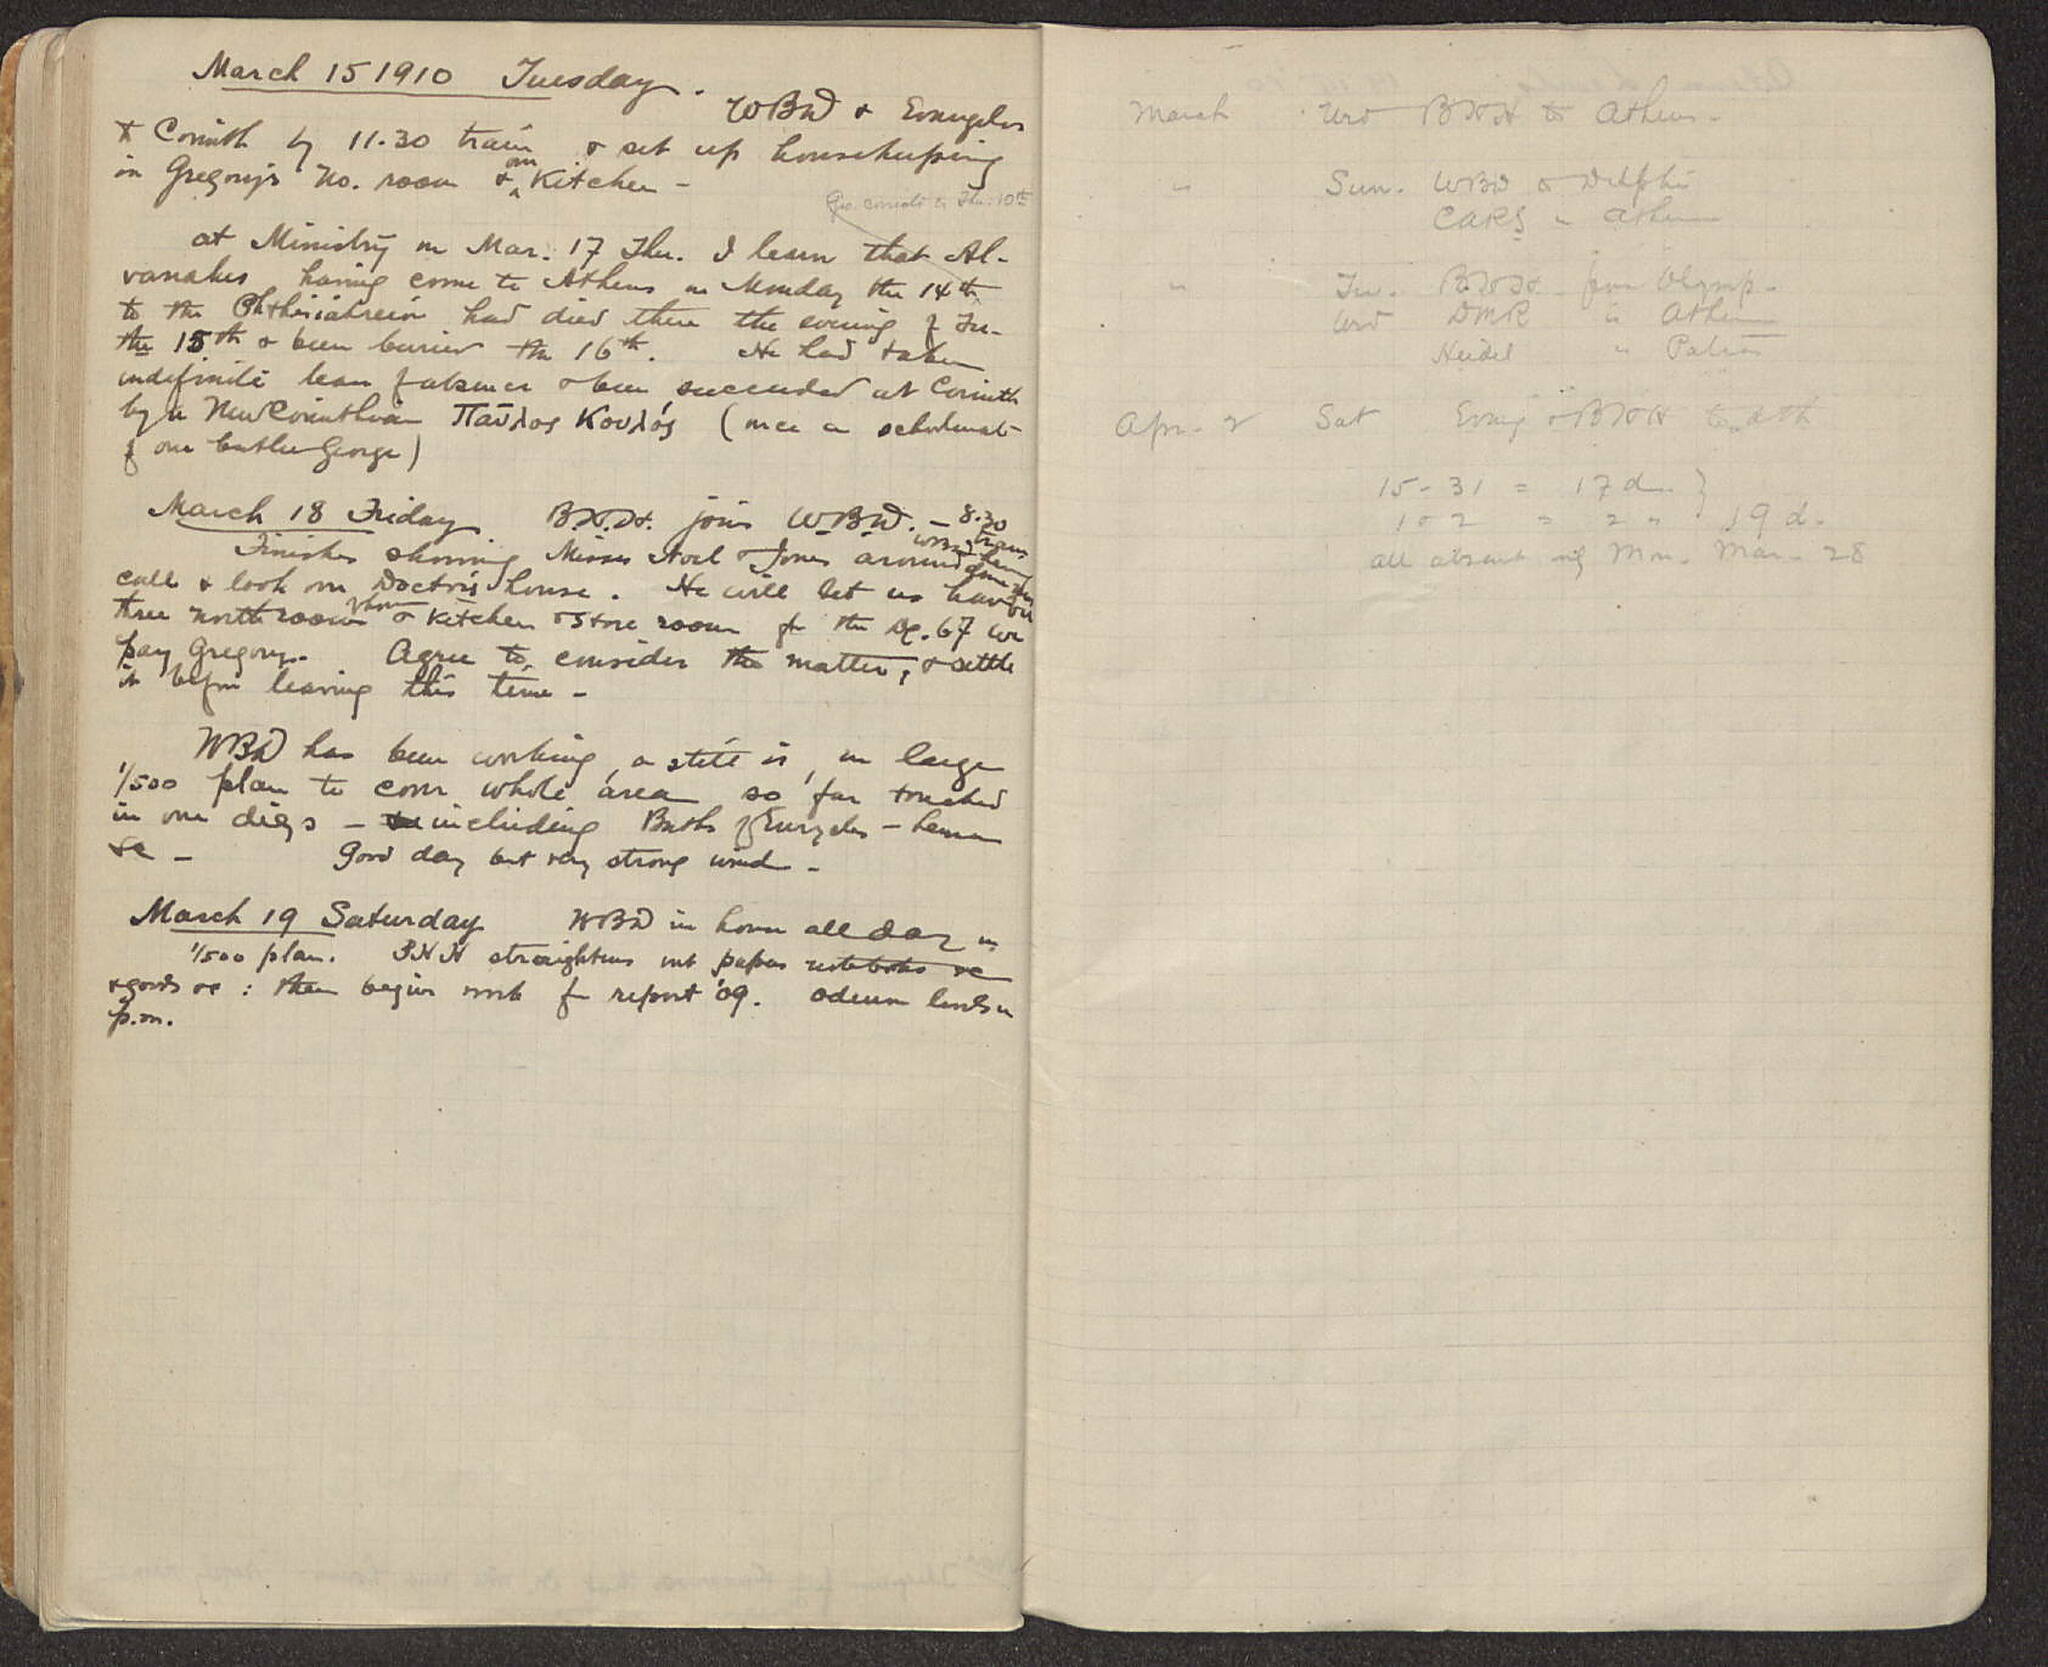 March 15 1910 Tuesday.
WBD & Evangelos
to Corinth by 11.30 train & set up housekeeping
in Gregory's No. room & our Kitchen -
Geo. corrects to Thu. 10th
At Ministry on Mar. 17 Thu. I learn that Al-
vanakes having come to Athens on Monday the 14th
to the Phthisiatreion had died there the evening of Tu-
the 15th & been buried the 16th. He had taken
indefinite leave of absence & been succeeded at Corinth
by a New Corinthian Παῦλος Κουλός (once a schoolmate
of our butler George)
March 18 Friday B.H.H. joins W.B.D. - 8.30 train
Finishes showing Misses & Jones around WBD having
call & look over Doctor's house. He will let us have
three north rooms & kitchen & store room for the Dr. 67 we
pay Gregory. Agree to consider the matter, & settle
it before leaving this time -
WBD has been working, & still is, on large
1/500 plan to cover whole area so far touched
in our digs - including Baths of Eurycles -
&c - Good day but very strong wind -
March 19 Saturday WBD in house all day on
1/500 plan. BHH straightens out papers notebooks &c
& goods &c : then begins work for report '09. Odeum levels in
p.m.
March Wed BHH to Athens -
" Sun. WBD to Delphi
CARS " Athens
" Tu. B.H.H. from Olymp -
Wed DMR " Athens
Heidel " Patras
Apr. 2 Sat Evang & BHH to Ath
15-31 = 17 d. }
1 & 2 = 2 " 19 d.
all absent only Mon. Mar. 28